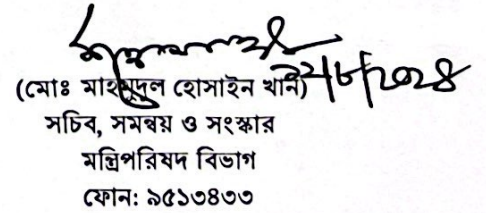 (মোঃ মাহমুদুল হোসাইন খান)
সচিব, সমন্বয় ও সংস্কার
মন্ত্রিপরিষদ বিভাগ
ফোন: ৯৫১৩৪৩৩